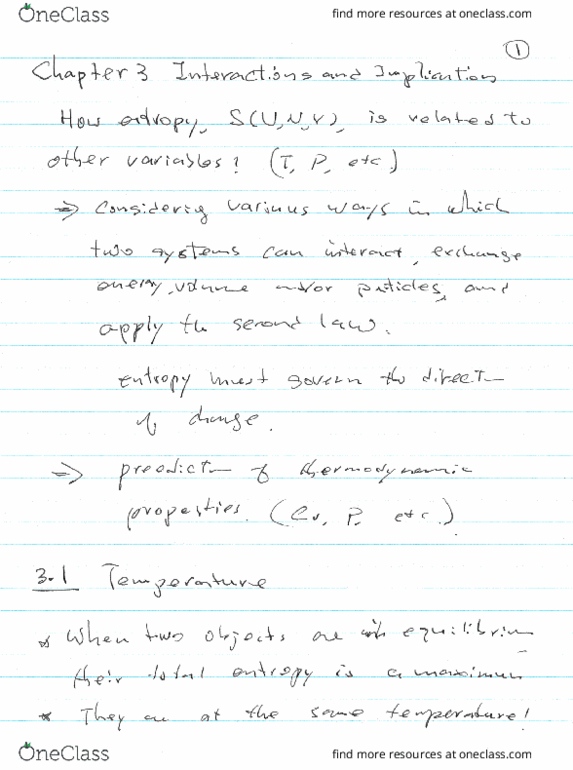 OneClass
find more resources at oneclass.com
1
Chapter 3 Interactions and Implication
How entropy, S(U,N,V), is related to
other variables? (T, P, etc)
⇒ Considering various ways in which
two systems can interact, exchange
energy, volume and/or particles, and
apply the second law.
entropy must govern the direct
of change.
⇒ predict of thermodynamic
properties. (Cv, P, etc.)
3.1 Temperature
* When two objects are in equilibrium
their total entropy is a maximum
* They are at the same temperature!
OneClass
find more resources at oneclass.com